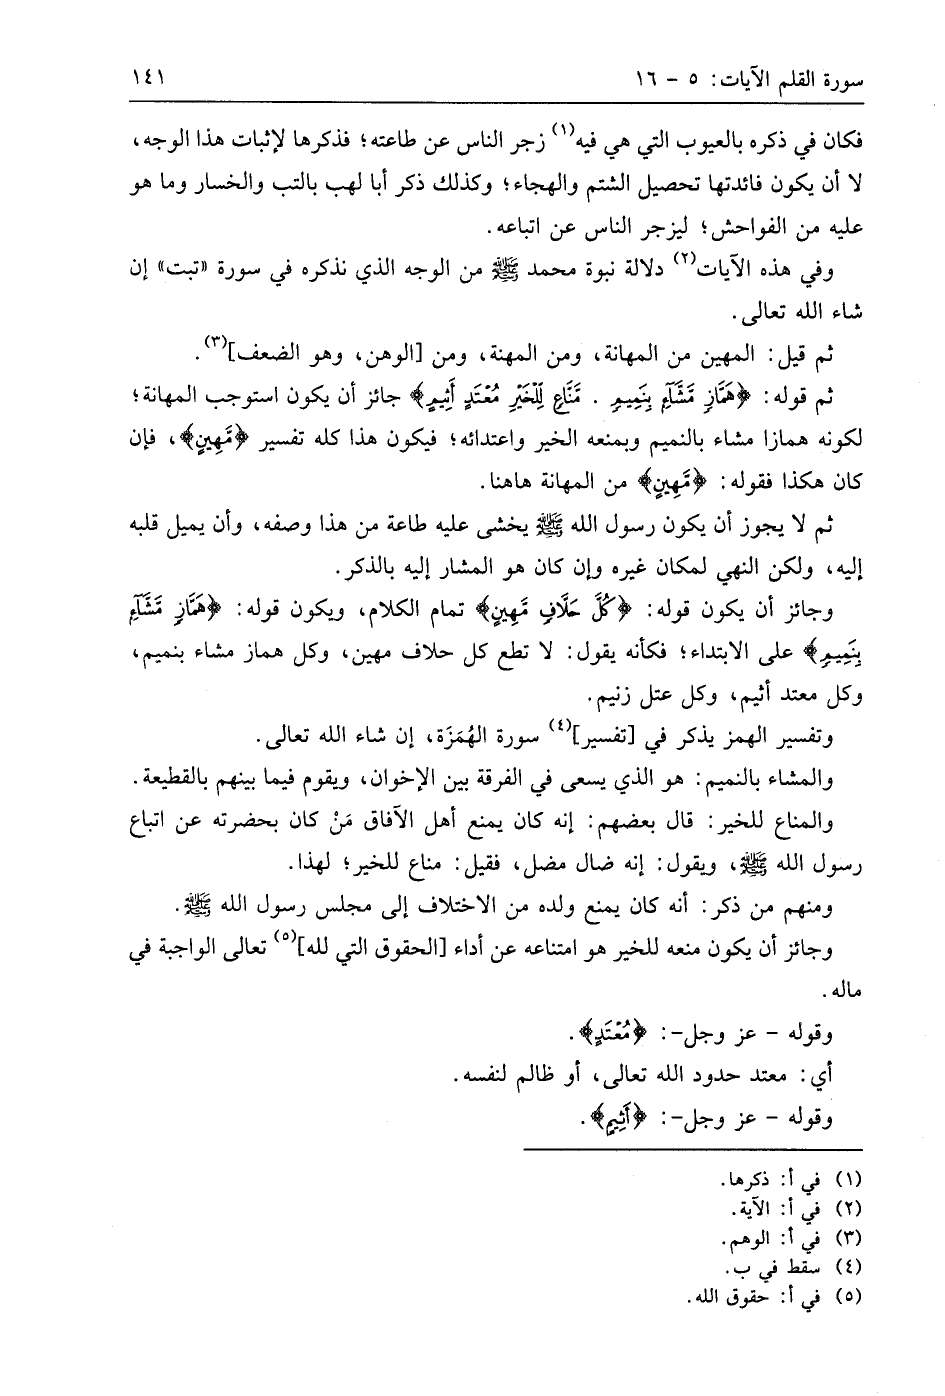 سورة القلم الآيات: ٥ - ١٦ ١٤١
فكان في ذكره بالعيوب التي هي فيه(١) زجر الناس عن طاعته؛ فذكرها لإثبات هذا الوجه،
لا أن يكون فائدتها تحصيل الشتم والهجاء؛ وكذلك ذكر أبا لهب بالتب والخسار وما هو
عليه من الفواحش؛ ليزجر الناس عن اتباعه.
وفي هذه الآيات(٢) دلالة نبوة محمد ﷺ من الوجه الذي نذكره في سورة «تبت» إن
شاء الله تعالى.
ثم قيل: المهين من المهانة، ومن المهنة، ومن [الوهن، وهو الضعف](٣).
ثم قوله: ﴿هَمَّازٍ مَّشَّآءٍ بِنَمِيمٍ . مَّنَّاعٍ لِّلْخَيْرِ مُعْتَدٍ أَثِيمٍ﴾ جائز أن يكون استوجب المهانة؛
لكونه همازا مشاء بالنميم وبمنعه الخير واعتدائه؛ فيكون هذا كله تفسير ﴿مَّهِينٍ﴾، فإن
كان هكذا فقوله: ﴿مَّهِينٍ﴾ من المهانة هاهنا.
ثم لا يجوز أن يكون رسول الله ﷺ يخشى عليه طاعة من هذا وصفه، وأن يميل قلبه
إليه، ولكن النهي لمكان غيره وإن كان هو المشار إليه بالذكر.
وجائز أن يكون قوله: ﴿كُلَّ حَلَّافٍ مَّهِينٍ﴾ تمام الكلام، ويكون قوله: ﴿هَمَّازٍ مَّشَّآءٍ
بِنَمِيمٍ﴾ على الابتداء؛ فكأنه يقول: لا تطع كل حلاف مهين، وكل هماز مشاء بنميم،
وكل معتد أثيم، وكل عتل زنيم.
وتفسير الهمز يذكر في [تفسير](٤) سورة الهُمَزَة، إن شاء الله تعالى.
والمشاء بالنميم: هو الذي يسعى في الفرقة بين الإخوان، ويقوم فيما بينهم بالقطيعة.
والمناع للخير: قال بعضهم: إنه كان يمنع أهل الآفاق مَنْ كان بحضرته عن اتباع
رسول الله ﷺ، ويقول: إنه ضال مضل، فقيل: مناع للخير؛ لهذا.
ومنهم من ذكر: أنه كان يمنع ولده من الاختلاف إلى مجلس رسول الله ﷺ.
وجائز أن يكون منعه للخير هو امتناعه عن أداء [الحقوق التي لله](٥) تعالى الواجبة في
ماله.
وقوله - عز وجل-: ﴿مُعْتَدٍ﴾.
أي: معتد حدود الله تعالى، أو ظالم لنفسه.
وقوله - عز وجل-: ﴿أَثِيمٍ﴾.
(١) في أ: ذكرها.
(٢) في أ: الآية.
(٣) في أ: الوهم.
(٤) سقط في ب.
(٥) في أ: حقوق الله.